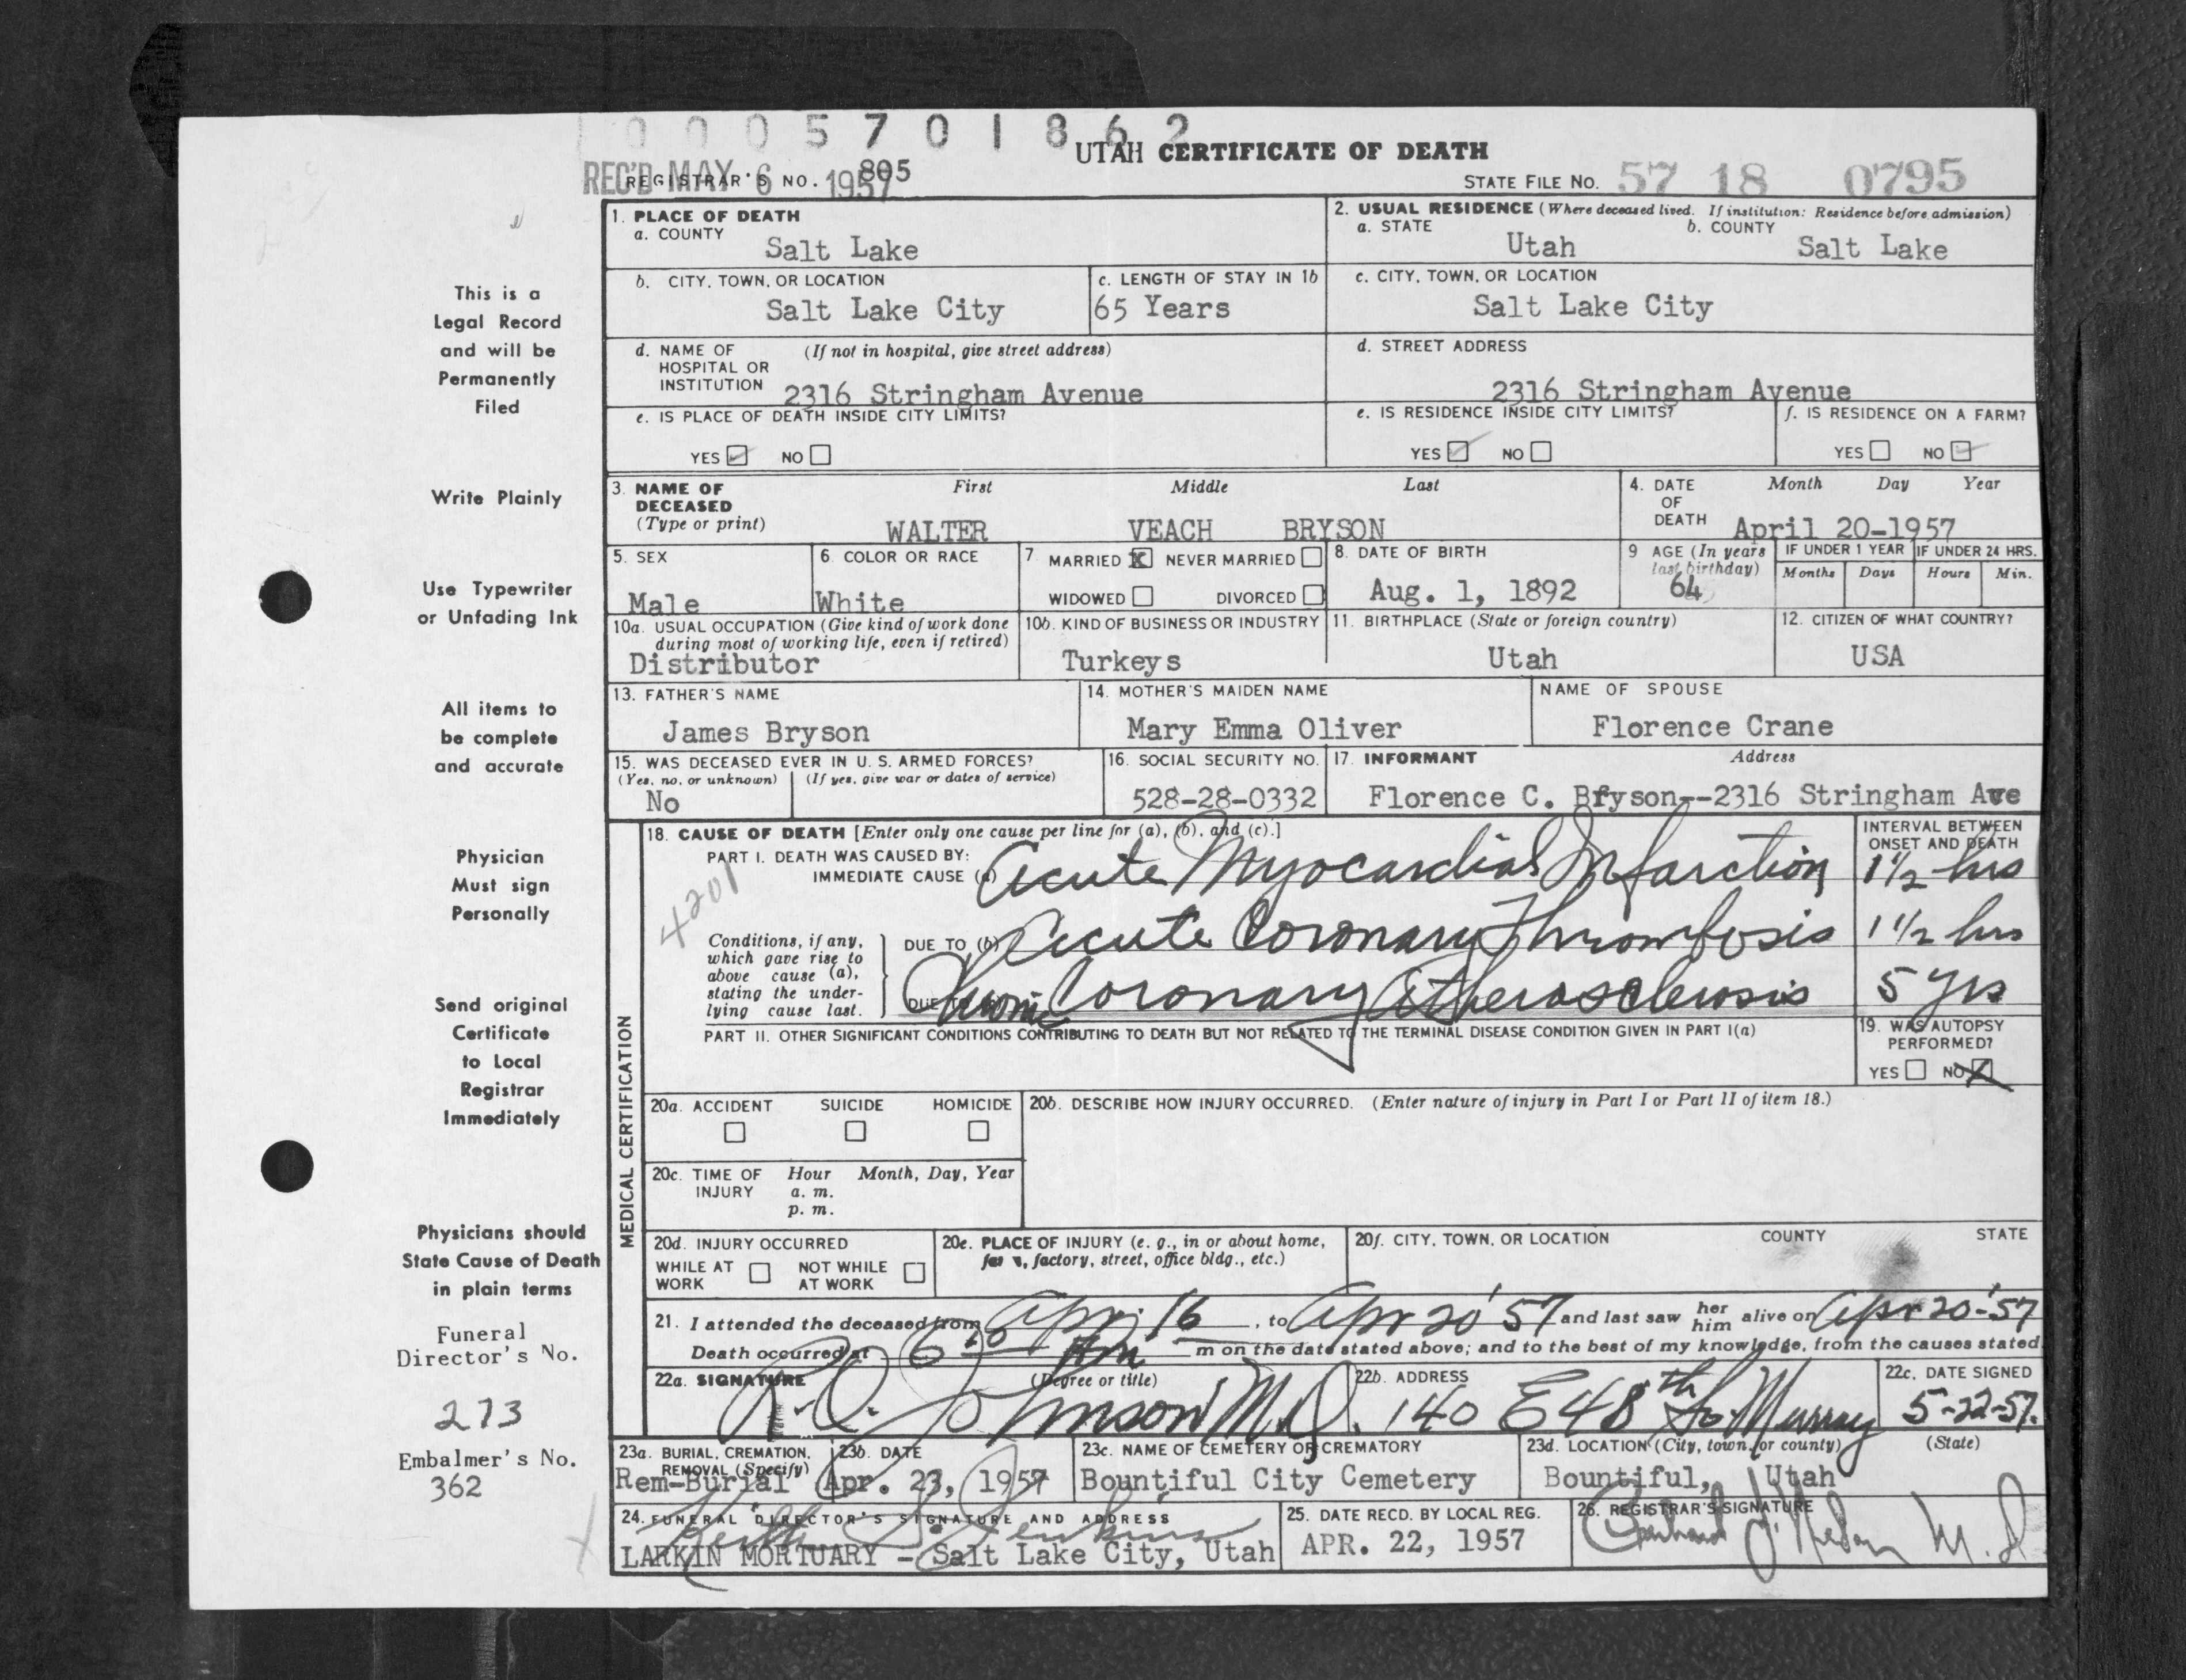 0005701862
UTAH CERTIFICATE OF DEATH
REC'D MAY 6 1957
REGISTRAR'S NO. 805
STATE FILE NO. 57 18 0795
This is a
Legal Record
and will be
Permanently
Filed
Write Plainly
Use Typewriter
or Unfading Ink
All items to
be complete
and accurate
Physician
Must sign
Personally
Send original
Certificate
to Local
Registrar
Immediately
Physicians should
State Cause of Death
in plain terms
Funeral
Director's No.
273
Embalmer's No.
362
1. PLACE OF DEATH
a. COUNTY
Salt Lake
2. USUAL RESIDENCE (Where deceased lived. If institution: Residence before admission)
a. STATE b. COUNTY
Utah Salt Lake
b. CITY, TOWN, OR LOCATION
Salt Lake City
c. LENGTH OF STAY IN 1b
65 Years
c. CITY, TOWN, OR LOCATION
Salt Lake City
d. NAME OF (If not in hospital, give street address)
HOSPITAL OR
INSTITUTION 2316 Stringham Avenue
d. STREET ADDRESS
2316 Stringham Avenue
e. IS PLACE OF DEATH INSIDE CITY LIMITS?
YES NO
e. IS RESIDENCE INSIDE CITY LIMITS?
YES NO
f. IS RESIDENCE ON A FARM?
YES NO
3. NAME OF First Middle Last
DECEASED
(Type or print)
WALTER VEACH BRYSON
4. DATE Month Day Year
OF
DEATH April 20-1957
5. SEX
Male
6. COLOR OR RACE
White
7. MARRIED X NEVER MARRIED
WIDOWED DIVORCED
8. DATE OF BIRTH
Aug. 1, 1892
9 AGE (In years
last birthday)
64
IF UNDER 1 YEAR
Months Days
IF UNDER 24 HRS.
Hours Min.
10a. USUAL OCCUPATION (Give kind of work done
during most of working life, even if retired)
Distributor
10b. KIND OF BUSINESS OR INDUSTRY
Turkeys
11. BIRTHPLACE (State or foreign country)
Utah
12. CITIZEN OF WHAT COUNTRY?
USA
13. FATHER'S NAME
James Bryson
14. MOTHER'S MAIDEN NAME
Mary Emma Oliver
NAME OF SPOUSE
Florence Crane
15. WAS DECEASED EVER IN U. S. ARMED FORCES?
(Yes, no, or unknown) (If yes, give war or dates of service)
No
16. SOCIAL SECURITY NO.
528-28-0332
17. INFORMANT Address
Florence C. Bryson--2316 Stringham Ave
MEDICAL CERTIFICATION
18. CAUSE OF DEATH [Enter only one cause per line for (a), (b), and (c).]
PART I. DEATH WAS CAUSED BY:
IMMEDIATE CAUSE (a) Acute Myocardial Infarction
4201
INTERVAL BETWEEN
ONSET AND DEATH
1½ hrs
Conditions, if any,
which gave rise to
above cause (a),
stating the under-
lying cause last.
DUE TO (b) Acute Coronary Thrombosis 1½ hrs
DUE TO Chronic Coronary Atherosclerosis 5 yrs
PART II. OTHER SIGNIFICANT CONDITIONS CONTRIBUTING TO DEATH BUT NOT RELATED TO THE TERMINAL DISEASE CONDITION GIVEN IN PART I(a)
19. WAS AUTOPSY
PERFORMED?
YES NO X
20a. ACCIDENT SUICIDE HOMICIDE
20b. DESCRIBE HOW INJURY OCCURRED. (Enter nature of injury in Part I or Part II of item 18.)
20c. TIME OF Hour Month, Day, Year
INJURY a. m.
p. m.
20d. INJURY OCCURRED
WHILE AT NOT WHILE
WORK AT WORK
20e. PLACE OF INJURY (e. g., in or about home,
farm, factory, street, office bldg., etc.)
20f. CITY, TOWN, OR LOCATION COUNTY STATE
21. I attended the deceased from Apr 16, to Apr 20 '57 and last saw her him alive on Apr 20-'57
Death occurred at 6 10 Am m on the date stated above; and to the best of my knowledge, from the causes stated.
22a. SIGNATURE (Degree or title)
Johnson M.D.
22b. ADDRESS
140 E 48th So. Murray
22c. DATE SIGNED
5-22-57.
23a. BURIAL, CREMATION,
REMOVAL (Specify)
Rem-Burial
23b. DATE
Apr. 23, 1957
23c. NAME OF CEMETERY OR CREMATORY
Bountiful City Cemetery
23d. LOCATION (City, town, or county) (State)
Bountiful, Utah
24. FUNERAL DIRECTOR'S SIGNATURE AND ADDRESS
Keith S. Jenkins
LARKIN MORTUARY - Salt Lake City, Utah
25. DATE RECD. BY LOCAL REG.
APR. 22, 1957
26. REGISTRAR'S SIGNATURE
M. D